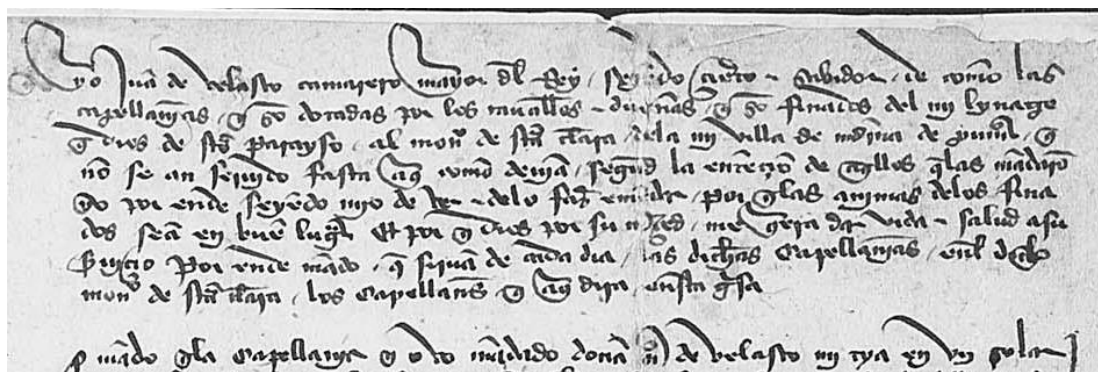 Yo Juã de velasco camarero mayor dl Rey, seyẽdo çierto e sabidor, de comõ las
capellanias, q̃ sõ dotadas por los cavalłos e dueñas, q̃ sõ finados del mi lynage
q̃ dios de stõ parayso, al mon° de stã clara, dela mi villa de medina de pumar, q̃
nõ se an servido fasta aq̃ comõ deviã, segund la entençiõ de aq̃llos q̃ las mãdarõ
Do por ende seyẽdo mio de ver e delo faz̃ emẽdar, por q̃ las animas delos fina
dos seã en buẽ lugar Et por q̃ dios por su mrçed, me quera dar vida e salud a su
serviçio Por ende mãdo, q̃ sirvã de cada dia, las dichas Capellanias, enel dcho
mon° de stã clara, los Capellanes q̃ aq̃ dira, en esta gisa
mãdo q̃ la Capellania q̃ mãdado doña de velasco mi tya en un solar